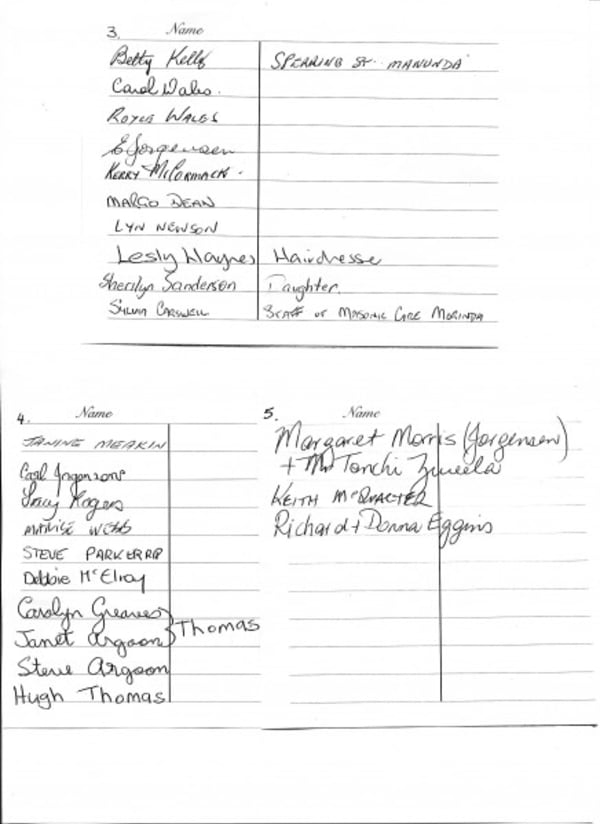 3. Name
Betty Kelly SPEARING ST. MANUNDA
Carol Wales.
ROYCE WALES
E Jorgensen
KERRY McCORMACK.
MARGO DEAN
LYN NEWSON
Lesly Haynes Hairdresse
Sherilyn Sanderson Daughter.
SYLVIA CARSWELL STAFF OF MASONIC CARE MORINDA
4. Name
JANINE MEAKIN
Carl
Tracy Rogers
WEBB
STEVE PARKER RIP
Debbie McElroy
Carolyn Greaves
Janet Argoon } Thomas
Steve Argoon
Hugh Thomas
5. Name
Margaret Morris (Jorgensen)
+ Mr Tonchi
KEITH
Richard + Donna Eggins